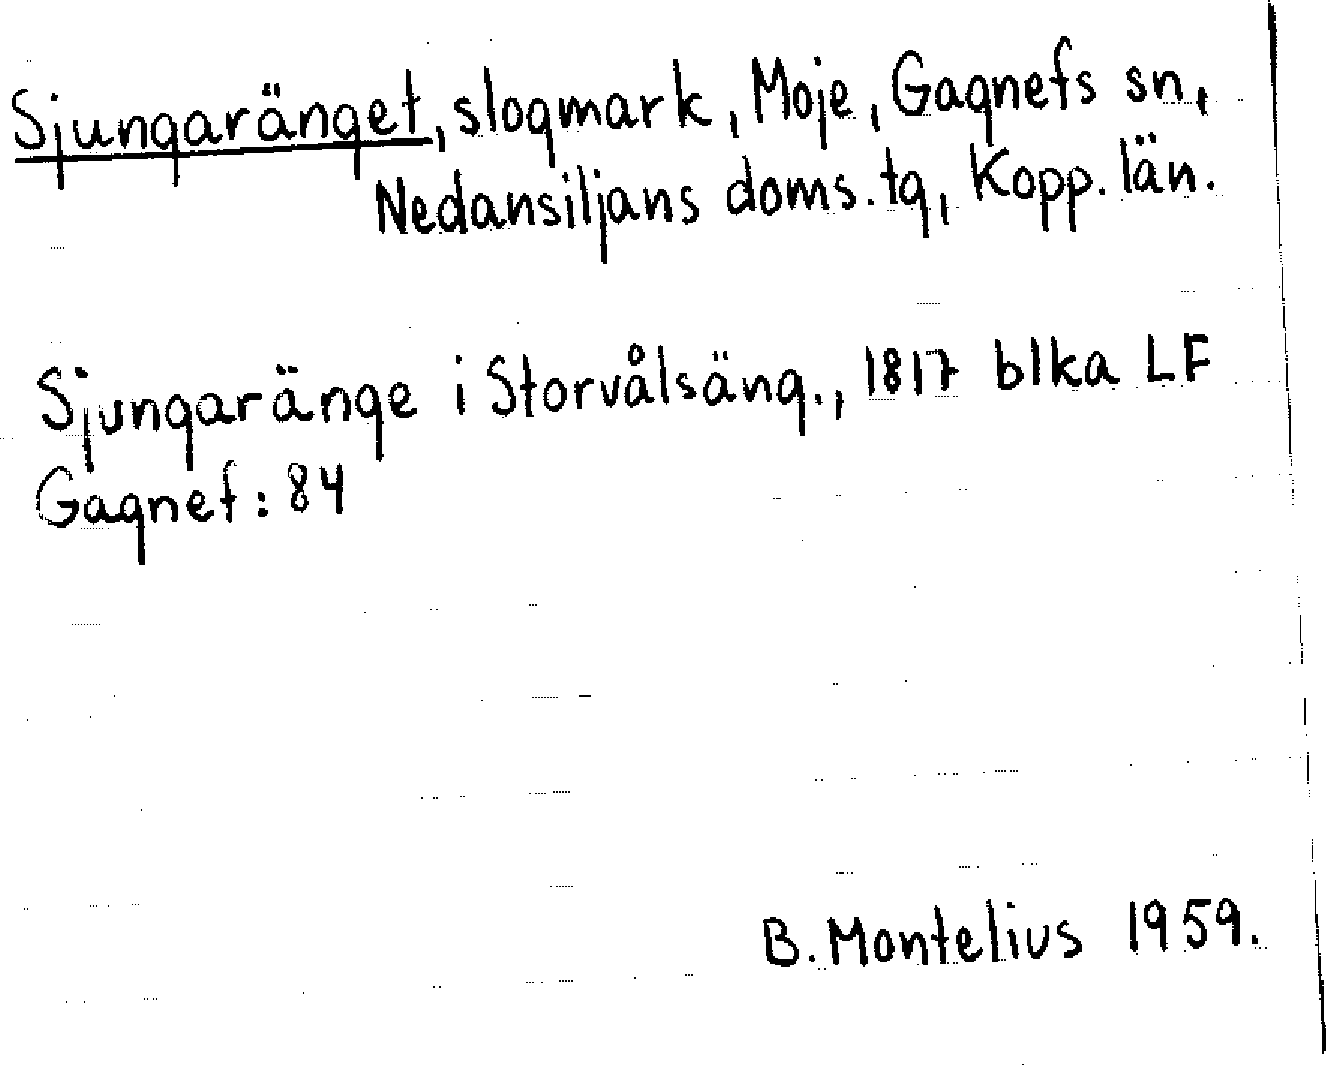 Sjungaränget, slogmark, Moje, Gagnefs sn,
Nedansiljans doms.tg, Kopp. län.
Sjungaränge i Storvålsäng., 1817 blka LF
Gagnef: 84
B. Montelius 1959.